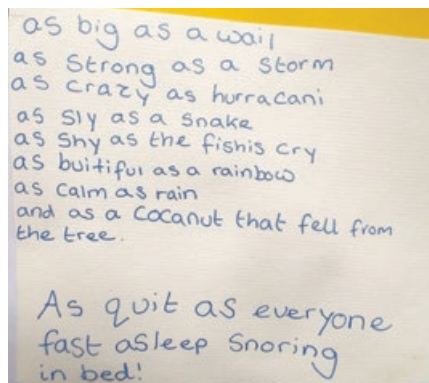 as big as a wail
as strong as a storm
as crazy as hurracani
as sly as a snake
as shy as the fishis cry
as buitiful as a rainbow
as calm as rain
and as a cocanut that fell from
the tree.
As quit as everyone
fast asleep snoring
in bed!